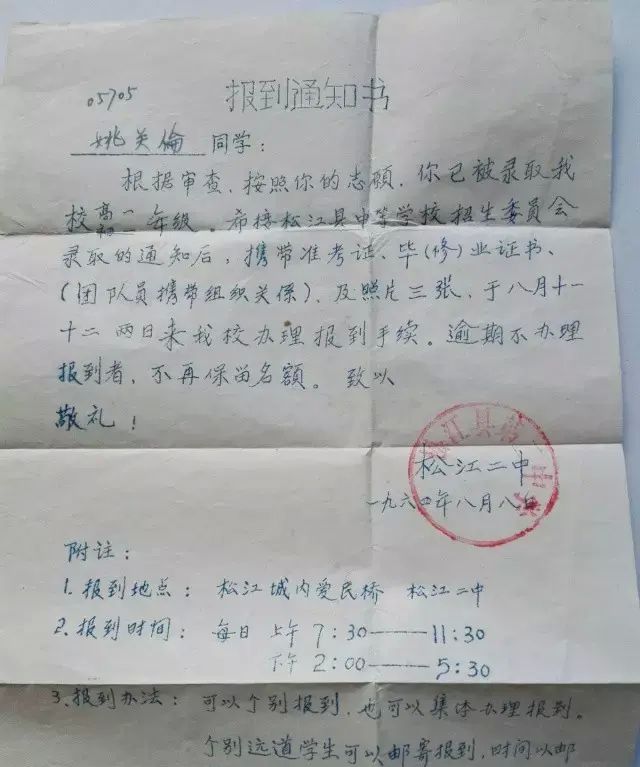 报到通知书
05705
姚关倫 同学:
根据审查,按照你的志願,你已被录取我
校高一年级。希接松江县中等学校招生委员会
录取的通知后,携带准考证、毕(修)业证书、
(团队员携带组织关系),及照片三张,于八月十一
十二两日来我校办理报到手续。逾期不办理
报到者,不再保留名額。 致以
敬礼!
松江二中
一九六四年八月八日
附注:
1. 报到地点: 松江城内爱民桥 松江二中
2. 报到时间: 每日 上午 7:30——11:30
下午 2:00——5:30
3. 报到办法: 可以个别报到,也可以集体办理报到。
个别远道学生可以邮寄报到,时间以邮